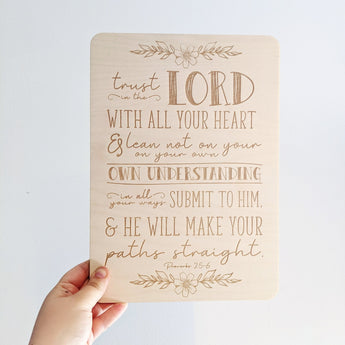 trust in the LORD
WITH ALL YOUR HEART
& lean not on your
on your own
OWN UNDERSTANDING
in all your ways SUBMIT TO HIM,
& HE WILL MAKE YOUR
paths straight.
Proverbs 25:6